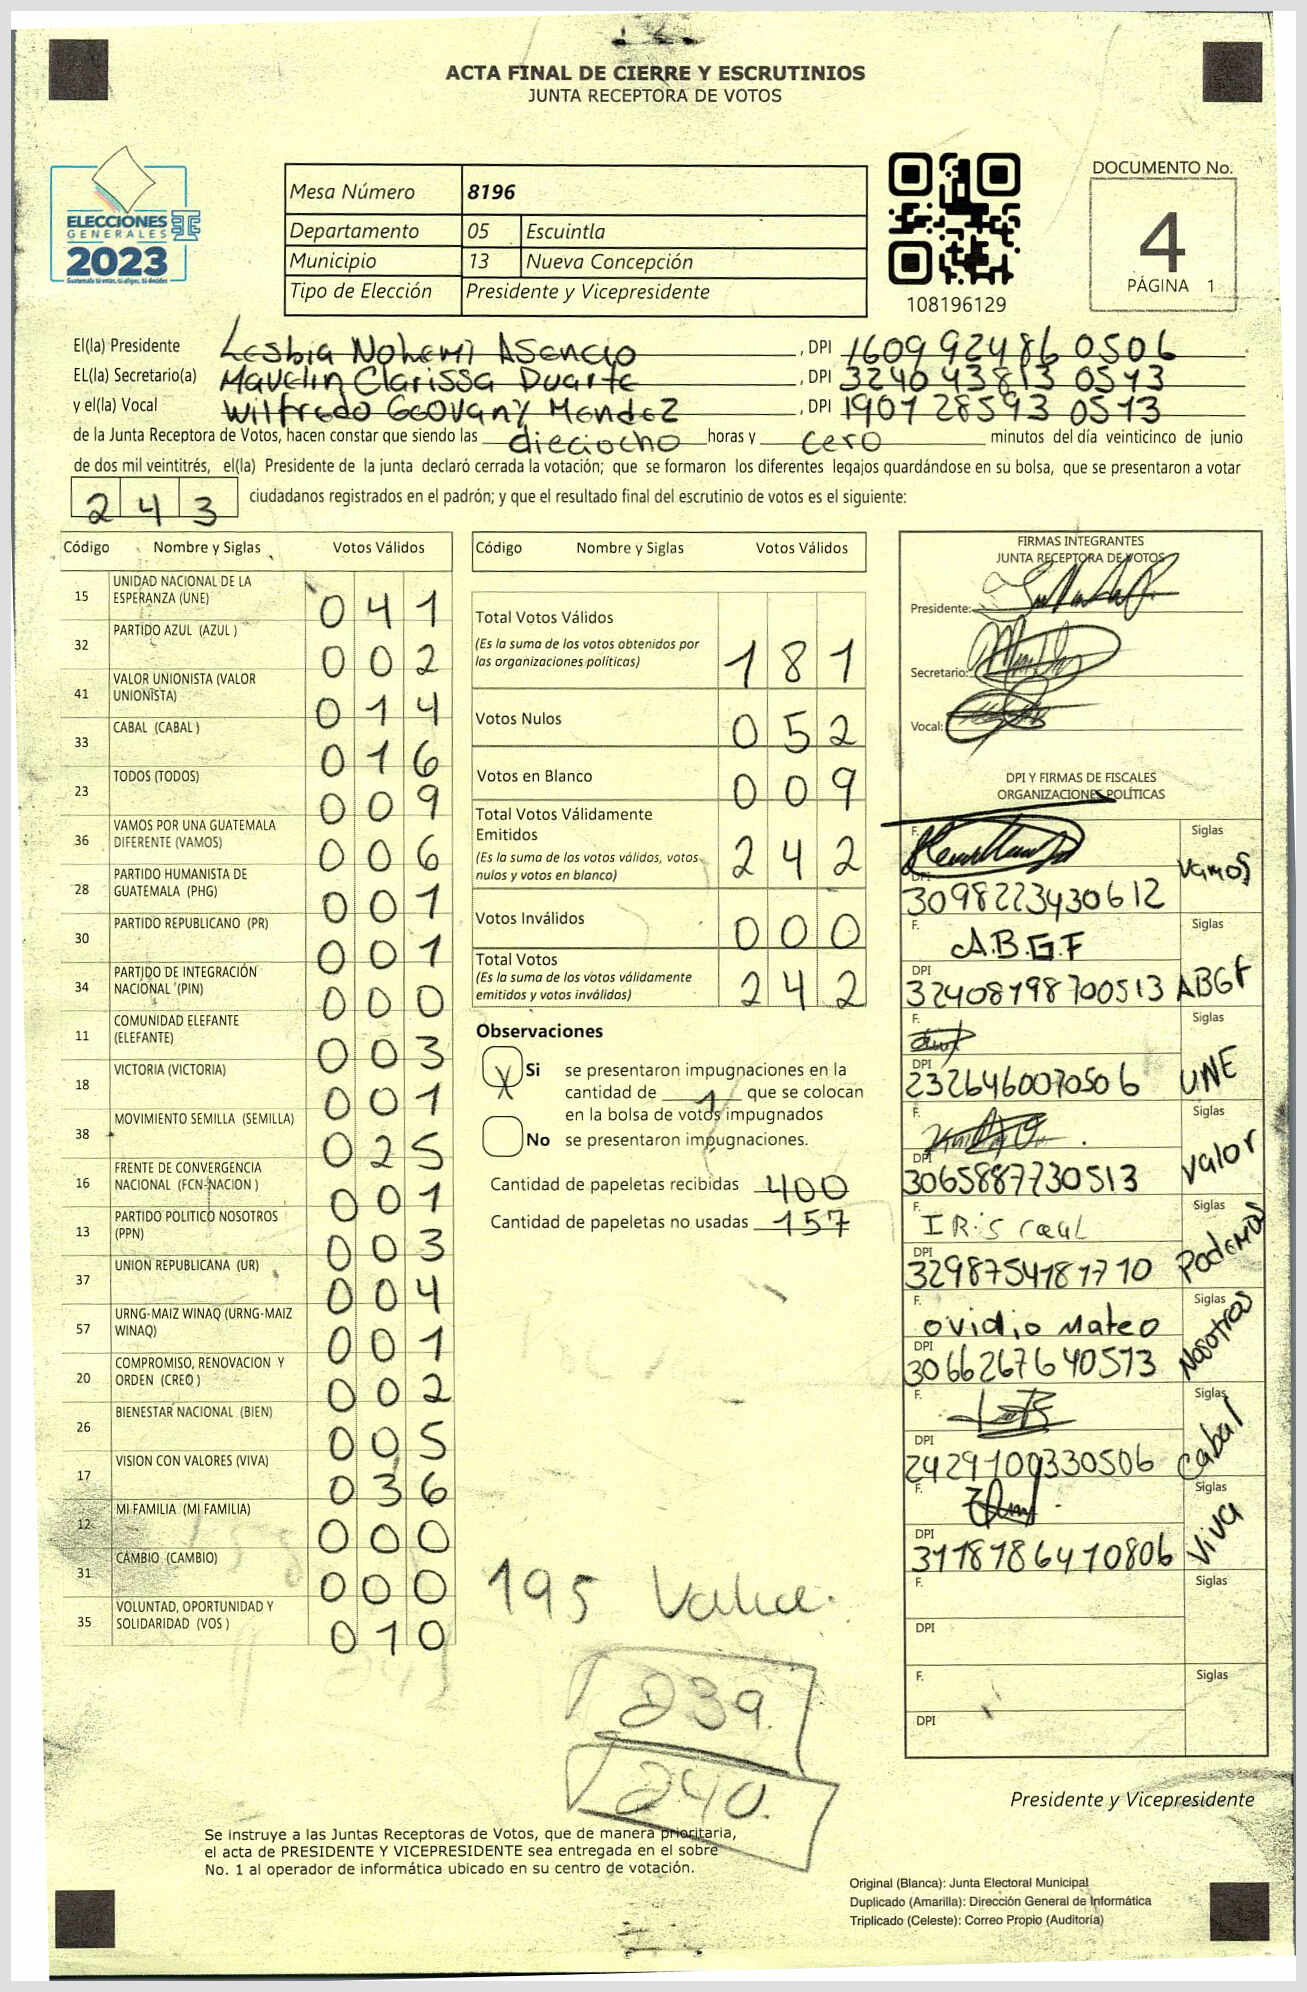 ACTA FINAL DE CIERRE Y ESCRUTINIOS
JUNTA RECEPTORA DE VOTOS
ELECCIONES
GENERALES
2023
Guatemala tú votas, tú eliges, tú decides
Mesa Número 8196
Departamento 05 Escuintla
Municipio 13 Nueva Concepción
Tipo de Elección Presidente y Vicepresidente
108196129
DOCUMENTO No.
4
PÁGINA 1
El(la) Presidente Lesbia Nohemi Asencio , DPI 1609 92486 0506
EL(la) Secretario(a) Mavelin Clarissa Duarte , DPI 3240 43813 0513
y el(la) Vocal Wilfredo Geovany Mendez , DPI 1901 28593 0513
de la Junta Receptora de Votos, hacen constar que siendo las dieciocho horas y cero minutos del día veinticinco de junio
de dos mil veintitrés, el(la) Presidente de la junta declaró cerrada la votación; que se formaron los diferentes legajos guardándose en su bolsa, que se presentaron a votar
243 ciudadanos registrados en el padrón; y que el resultado final del escrutinio de votos es el siguiente:
Código Nombre y Siglas Votos Válidos
15 UNIDAD NACIONAL DE LA ESPERANZA (UNE) 041
32 PARTIDO AZUL (AZUL ) 002
41 VALOR UNIONISTA (VALOR UNIONISTA) 014
33 CABAL (CABAL ) 016
23 TODOS (TODOS) 009
36 VAMOS POR UNA GUATEMALA DIFERENTE (VAMOS) 006
28 PARTIDO HUMANISTA DE GUATEMALA (PHG) 001
30 PARTIDO REPUBLICANO (PR) 001
34 PARTIDO DE INTEGRACIÓN NACIONAL (PIN) 000
11 COMUNIDAD ELEFANTE (ELEFANTE) 003
18 VICTORIA (VICTORIA) 001
38 MOVIMIENTO SEMILLA (SEMILLA) 025
16 FRENTE DE CONVERGENCIA NACIONAL (FCN-NACION ) 001
13 PARTIDO POLITICO NOSOTROS (PPN) 003
37 UNION REPUBLICANA (UR) 004
57 URNG-MAIZ WINAQ (URNG-MAIZ WINAQ) 001
20 COMPROMISO, RENOVACION Y ORDEN (CREO ) 002
26 BIENESTAR NACIONAL (BIEN) 005
17 VISION CON VALORES (VIVA) 036
12 MI FAMILIA (MI FAMILIA) 000
31 CAMBIO (CAMBIO) 000
35 VOLUNTAD, OPORTUNIDAD Y SOLIDARIDAD (VOS ) 010
Código Nombre y Siglas Votos Válidos
Total Votos Válidos
(Es la suma de los votos obtenidos por
las organizaciones políticas) 181
Votos Nulos 052
Votos en Blanco 009
Total Votos Válidamente
Emitidos
(Es la suma de los votos válidos, votos
nulos y votos en blanco) 242
Votos Inválidos 000
Total Votos
(Es la suma de los votos válidamente
emitidos y votos inválidos) 242
Observaciones
X Si se presentaron impugnaciones en la
cantidad de 1 que se colocan
en la bolsa de votos impugnados
No se presentaron impugnaciones.
Cantidad de papeletas recibidas 400
Cantidad de papeletas no usadas 157
195
239.
240.
FIRMAS INTEGRANTES
JUNTA RECEPTORA DE VOTOS
Presidente:
Secretario:
Vocal:
DPI Y FIRMAS DE FISCALES
ORGANIZACIONES POLÍTICAS
F. Siglas Vamos
DPI 3098223430612
F. A.B.G.F Siglas ABGF
DPI 32408198700513
F. Siglas UNE
DPI 2326460070506
F. Siglas Valor
DPI 3065887730513
F. Siglas Podemos
DPI 3298754181710
F. Ovidio Mateo Siglas Nosotros
DPI 3066267640513
F. Siglas Cabal
DPI 2429100330506
F. Siglas Viva
DPI 3118186410806
F. Siglas
DPI
F. Siglas
DPI
Presidente y Vicepresidente
Se instruye a las Juntas Receptoras de Votos, que de manera prioritaria,
el acta de PRESIDENTE Y VICEPRESIDENTE sea entregada en el sobre
No. 1 al operador de informática ubicado en su centro de votación.
Original (Blanca): Junta Electoral Municipal
Duplicado (Amarilla): Dirección General de Informática
Triplicado (Celeste): Correo Propio (Auditoría)